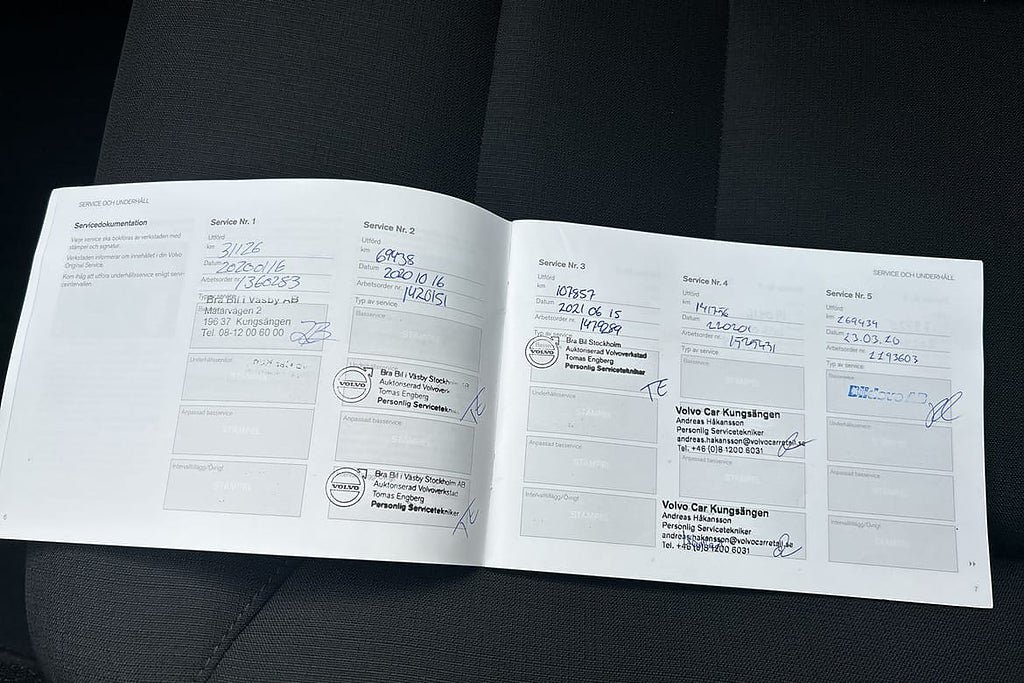 SERVICE OCH UNDERHÅLL
Servicedokumentation
Varje service ska bokföras av verkstaden med
stämpel och signatur.
Verkstaden informerar om innehållet i din Volvo
Original Service.
Kom ihåg att utföra underhållsservice enligt serv-
iceintervallen.
6
Service Nr. 1
Utförd
km 31126
Datum 20200116
Arbetsorder nr. 1360283
Bra Bil i Väsby AB
Mätarvägen 2
196 37 Kungsängen
Tel. 08-12 00 60 00
Underhållsservice
Anpassad basservice
STÄMPEL
Intervalltillägg/Övrigt
STÄMPEL
Service Nr. 2
Utförd
km 69438
Datum 2020 10 16
Arbetsorder nr. 1420151
Typ av service
Basservice
STÄMPEL
VOLVO
Bra Bil i Väsby Stockholm AB
Auktoriserad Volvoverk
Tomas Engberg
Personlig Servicetekn
TE
Anpassad basservice
STÄMPEL
VOLVO
Bra Bil i Väsby Stockholm AB
Auktoriserad Volvoverkstad
Tomas Engberg
Personlig Servicetekniker
TE
Service Nr. 3
Utförd
km 107857
Datum 2021 06 15
Arbetsorder nr. 1479289
Typ av service
VOLVO
Bra Bil Stockholm
Auktoriserad Volvoverkstad
Tomas Engberg
Personlig Servicetekniker
TE
Underhållsservice
STÄMPEL
Anpassad basservice
STÄMPEL
Intervalltillägg/Övrigt
STÄMPEL
SERVICE OCH UNDERHÅLL
Service Nr. 4
Utförd
km 141756
Datum 220201
Arbetsorder nr. 1525431
Typ av service
Basservice
STÄMPEL
Volvo Car Kungsängen
Andreas Håkansson
Personlig Servicetekniker
andreas.hakansson@volvocarretail.se
Tel. +46 (0)8 1200 6031
Anpassad basservice
STÄMPEL
Volvo Car Kungsängen
Andreas Håkansson
Personlig Servicetekniker
andreas.hakansson@volvocarretail.se
Tel. +46 (0)8 1200 6031
Service Nr. 5
Utförd
km 169434
Datum 23.03.20
Arbetsorder nr. 1193603
Typ av service
Basservice
Underhållsservice
STÄMPEL
Anpassad basservice
STÄMPEL
Intervalltillägg/Övrigt
STÄMPEL
7